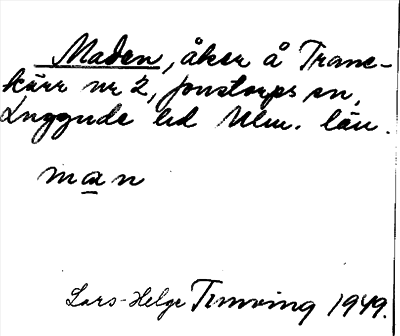 Maden, åker å Trane-
kärr nr 2, Jonstorps sn,
Luggude hd Mlm. län.
man
Lars-Helge Tunving 1949.